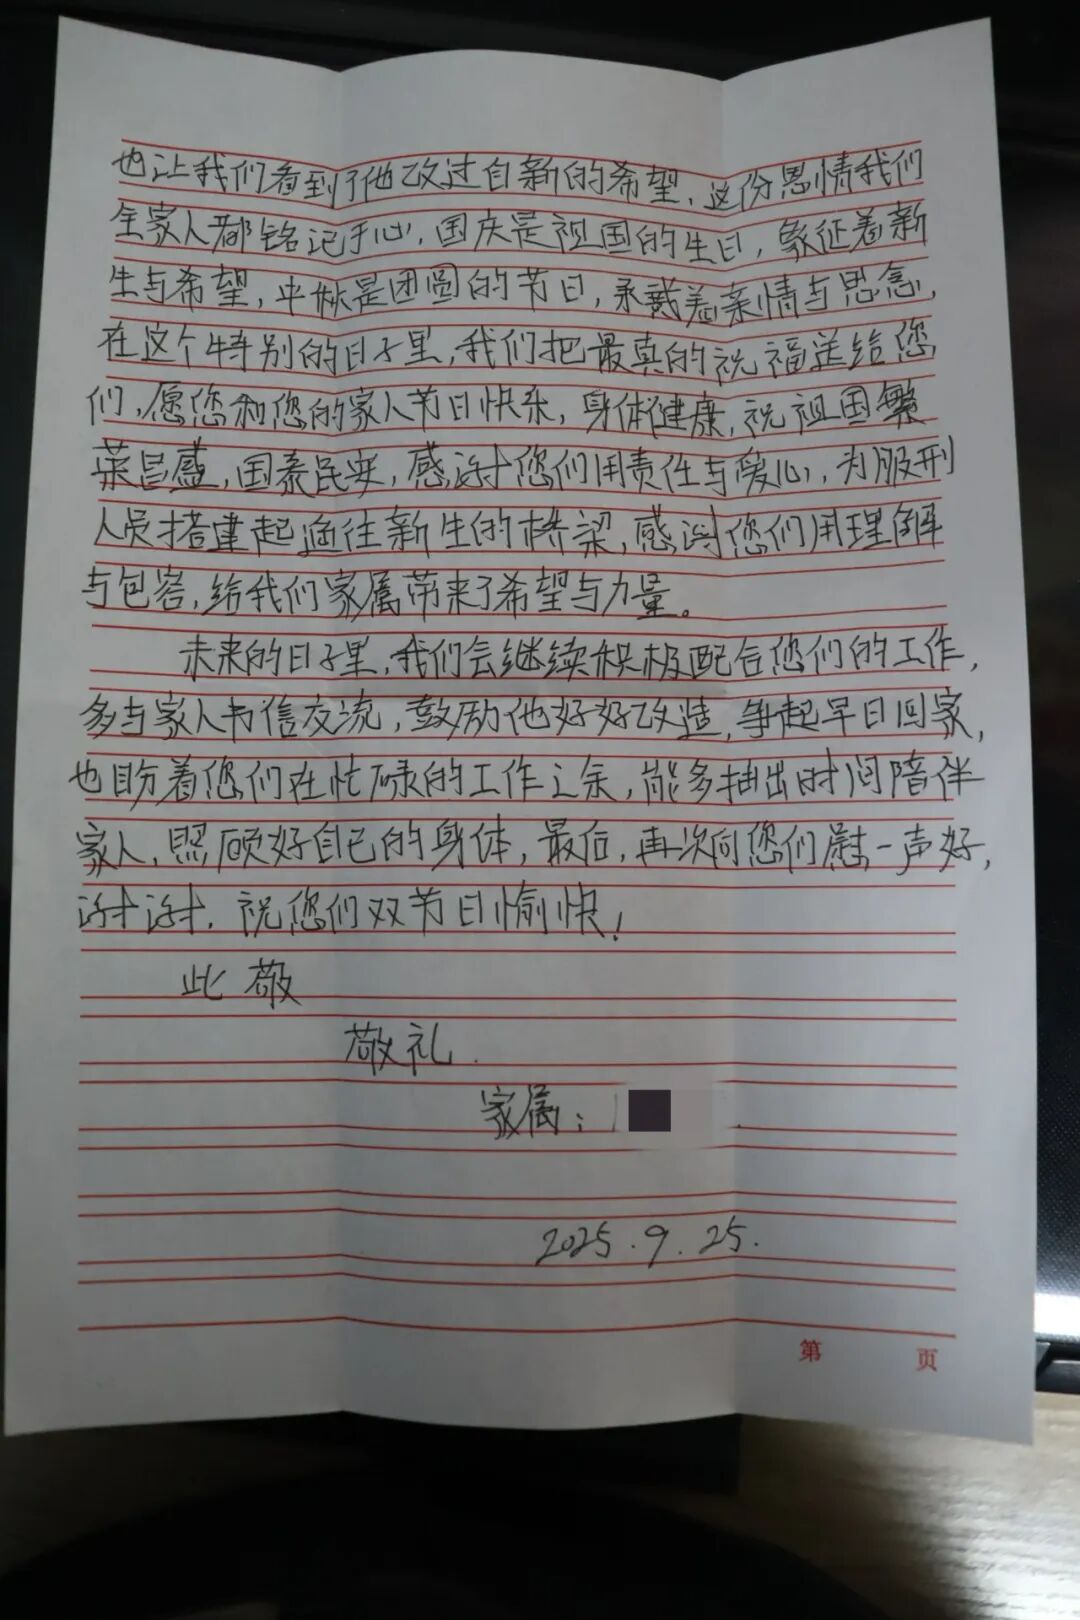 也让我们看到了他改过自新的希望，这份恩情我们
全家人都铭记于心，国庆是祖国的生日，象征着新
生与希望，中秋是团圆的节日，承载着亲情与思念，
在这个特别的日子里，我们把最真的祝福送给您
们，愿您和您的家人节日快乐，身体健康，祝祖国繁
荣昌盛，国泰民安，感谢您们用责任与爱心，为服刑
人员搭建起通往新生的桥梁，感谢您们用理解
与包容，给我们家属带来了希望与力量。
未来的日子里，我们会继续积极配合您们的工作，
多与家人书信交流，鼓励他好好改造，争起早日回家，
也盼着您们在忙碌的工作之余，能多抽出时间陪伴
家人，照顾好自己的身体，最后，再次向您们慰一声好，
谢谢，祝您们双节日愉快！
此敬
敬礼.
家属：
2025.9.25.
第 页